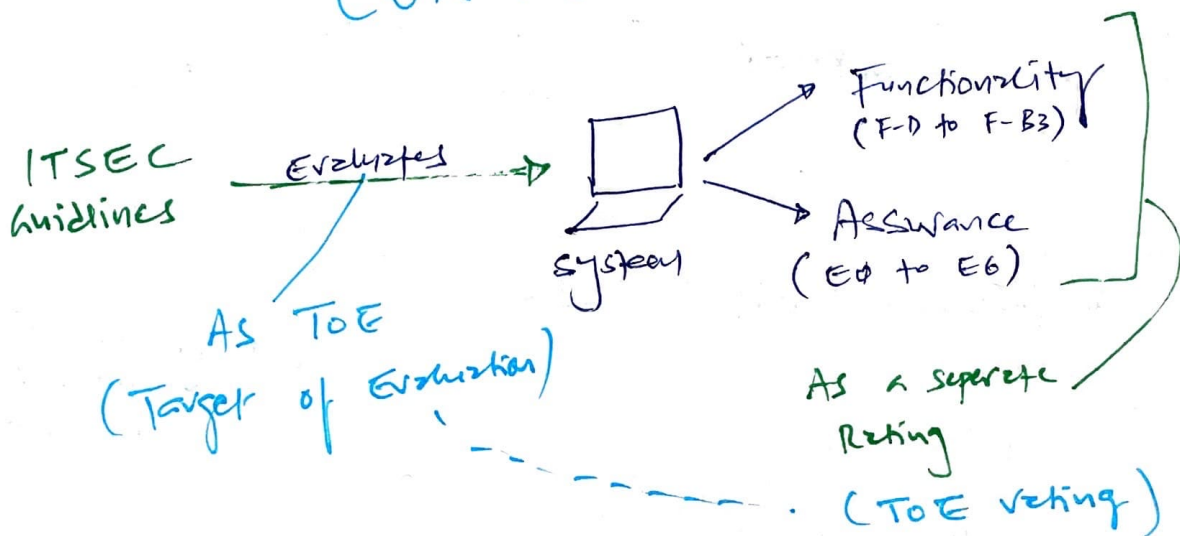 ITSEC
Guidlines
Evaluates
system
Functionality
(F-D to F-B3)
Assurance
(E0 to E6)
As TOE
(Target of Evaluation)
As a seperate
Rating
(TOE rating)